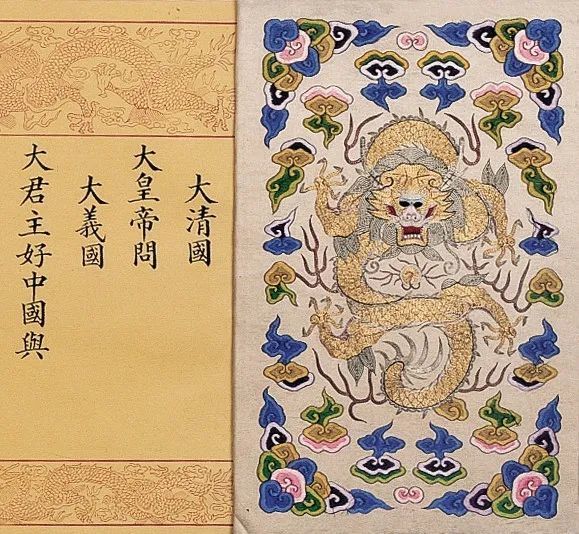 大清國
大皇帝問
大義國
大君主好中國與